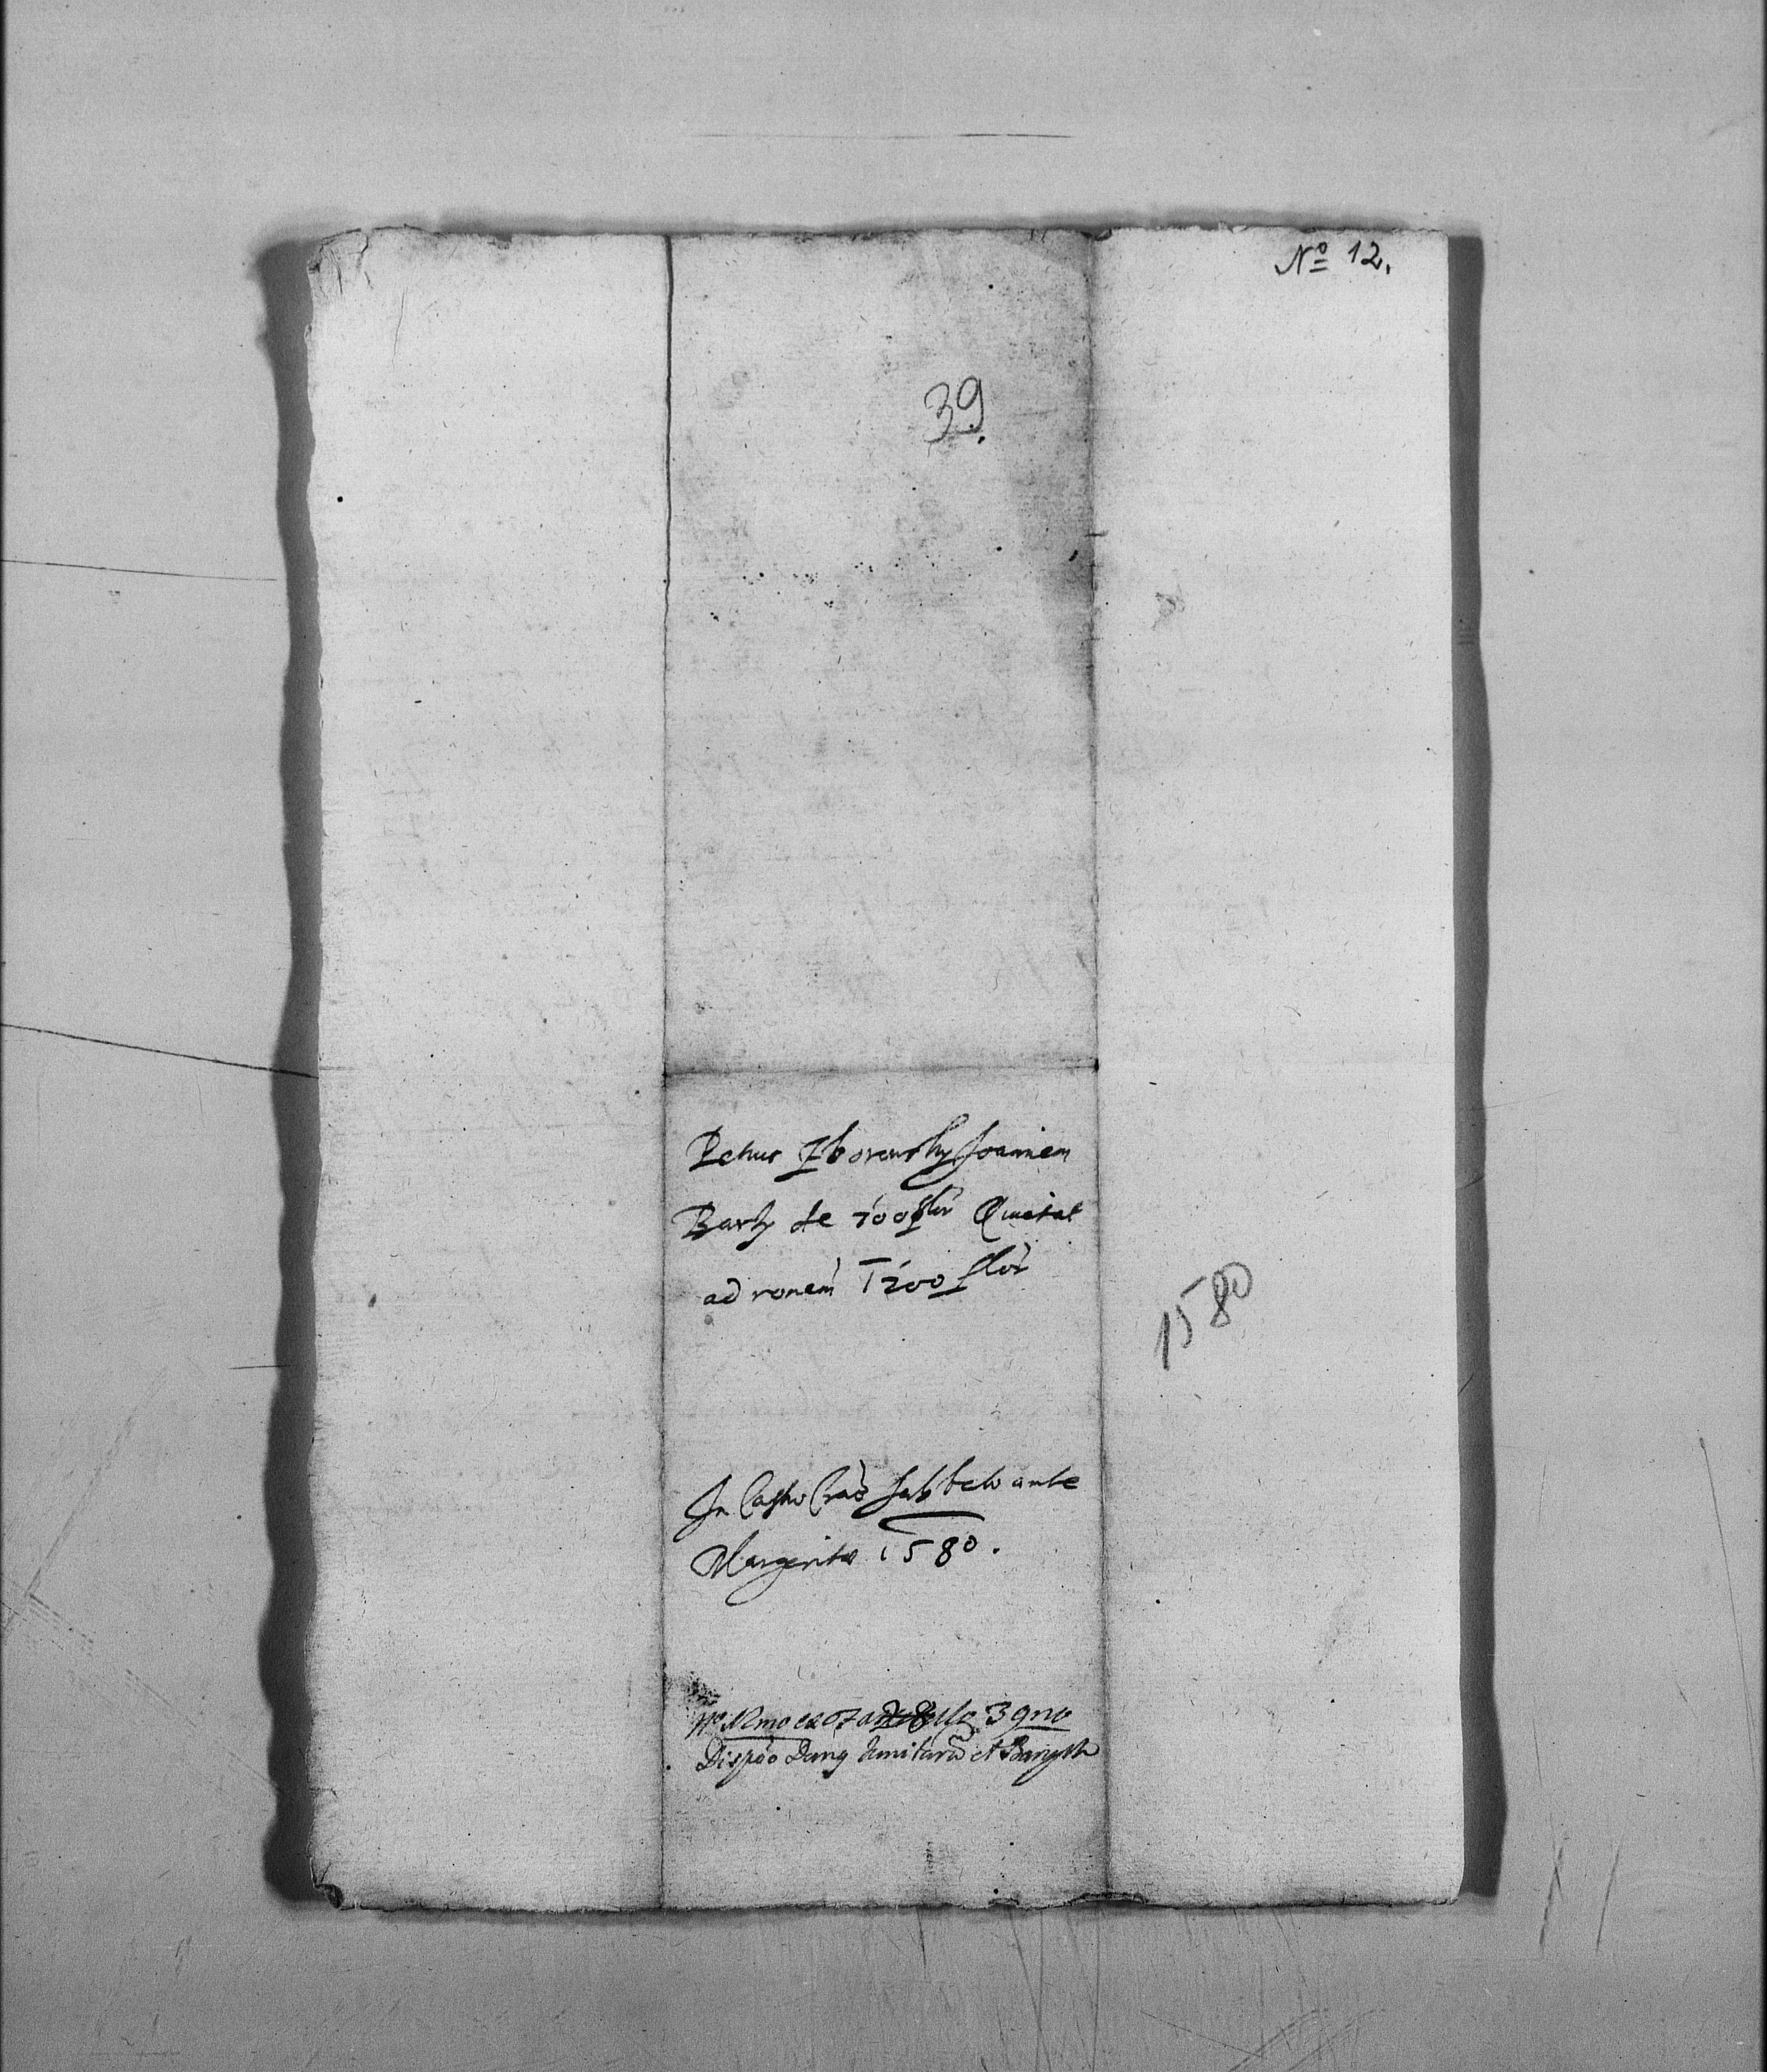 Nº 12.
39.
Petrus Zborowsky Joannem
Barzy de 700 flor Quietat
ad ronem 1200 flor
1580
In Castro Crac̃ Sabbetw ante
Margeritæ 1580.
3 gno
Dispõo et